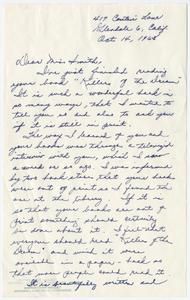 Glendale 6, Calif
Oct 14, 1965
Dear Miss Smith,
I've just finished reading
your book "Killers of the Dream".
It is such a wonderful book in
so many ways, that I wanted to
tell you so and also to ask you
if it is still in print.
The way I learned of you and
your books was through a television
interview with you, which I saw
a week or so ago. I was informed
by two book stores that your books
were out of print so I found the
one at the library. If it is
so that your books are out of
print something should certainly
be done about it. I feel that
everyone should read "Killers of the
Dream" and wish it were
available as a paper-back so
that more people could read it.
It is beautifully written and